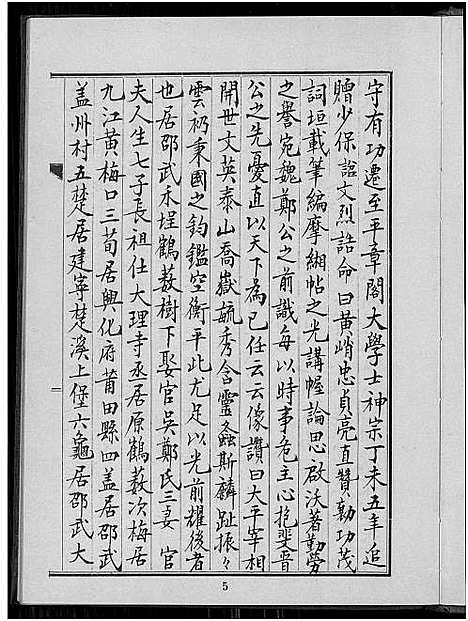 守有功遷至平章閣大學士神宗丁未五年追
贈少保諡文烈誥命曰黃峭忠貞亮直贊勷功茂
詞垣載筆編摩緗帖之光講幄論思啟沃著勤勞
之譽宛魏鄭公之前識每以時事危主心抱斐晋
公之先憂直以天下為已任云云像讚曰太平宰相
開世文英泰山喬嶽毓秀含靈螽斯麟趾振々
雲礽秉國之鈞鑑空衡平此尤足以光前耀後者
也居邵武禾埕鶴薮樹下娶官吳鄭氏三妻 官
夫人生七子長祖仕大理寺丞居原鶴薮次梅居
九江黃梅口三荀居興化府莆田縣四盖居邵武
盖州村五楚居建寧楚溪上堡六龜居邵武大
5